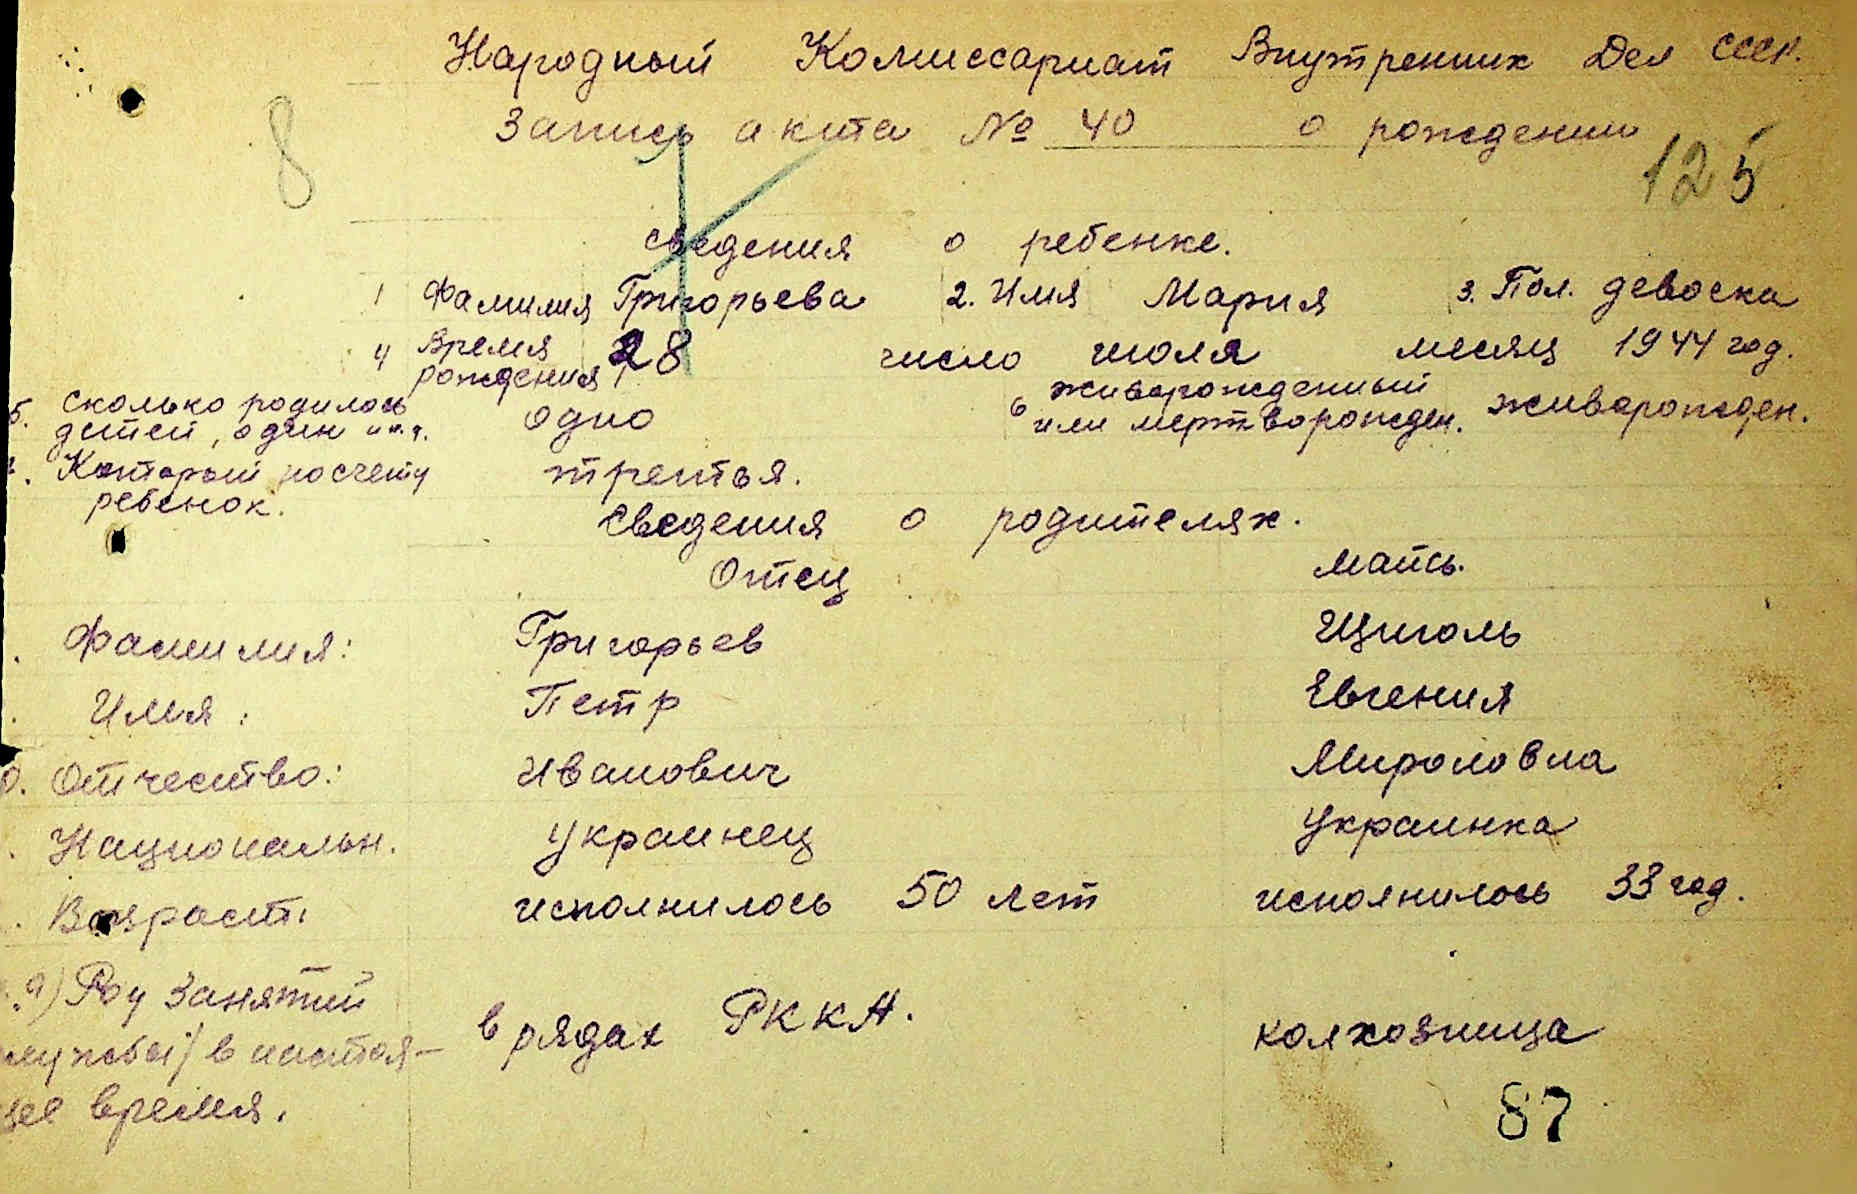 Народный Комиссариат Внутренних Дел СССР.
8
Запись акта № 40 о рождении
125
сведения о ребенке.
1 Фамилия Григорьева 2. Имя Мария 3. Пол. девоска
4 Время рождения 28 число июля месяц 1944 год.
5. сколько родилось детей, один и т.д. одно 6 живорожденный или мертворожден. живорожден.
Который по счету ребенок. третья.
Сведения о родителях.
Отец мать.
Фамилия: Григорьев Щиголь
Имя: Петр Евгения
Отчество: Иванович Мироновна
Национальн. Украинец Украинка
Возраст: исполнилось 50 лет исполнилось 33 год.
а) Род Занятий
службы) в настоя-
щее время.
в рядах РККА. колхозница
87